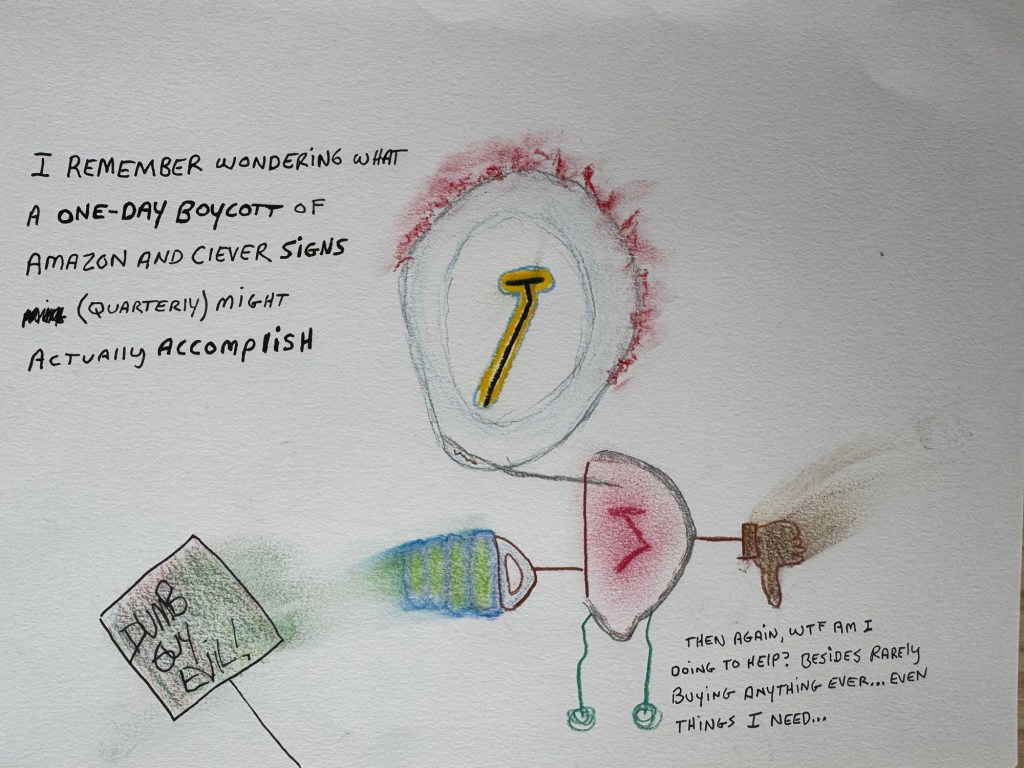 I REMEMBER WONDERING WHAT
A ONE-DAY BOYCOTT OF
AMAZON AND CLEVER SIGNS
(QUARTERLY) MIGHT
ACTUALLY ACCOMPLISH
DUMB
GUY
EVIL!
THEN AGAIN, WTF AM I
DOING TO HELP? BESIDES RARELY
BUYING ANYTHING EVER... EVEN
THINGS I NEED...